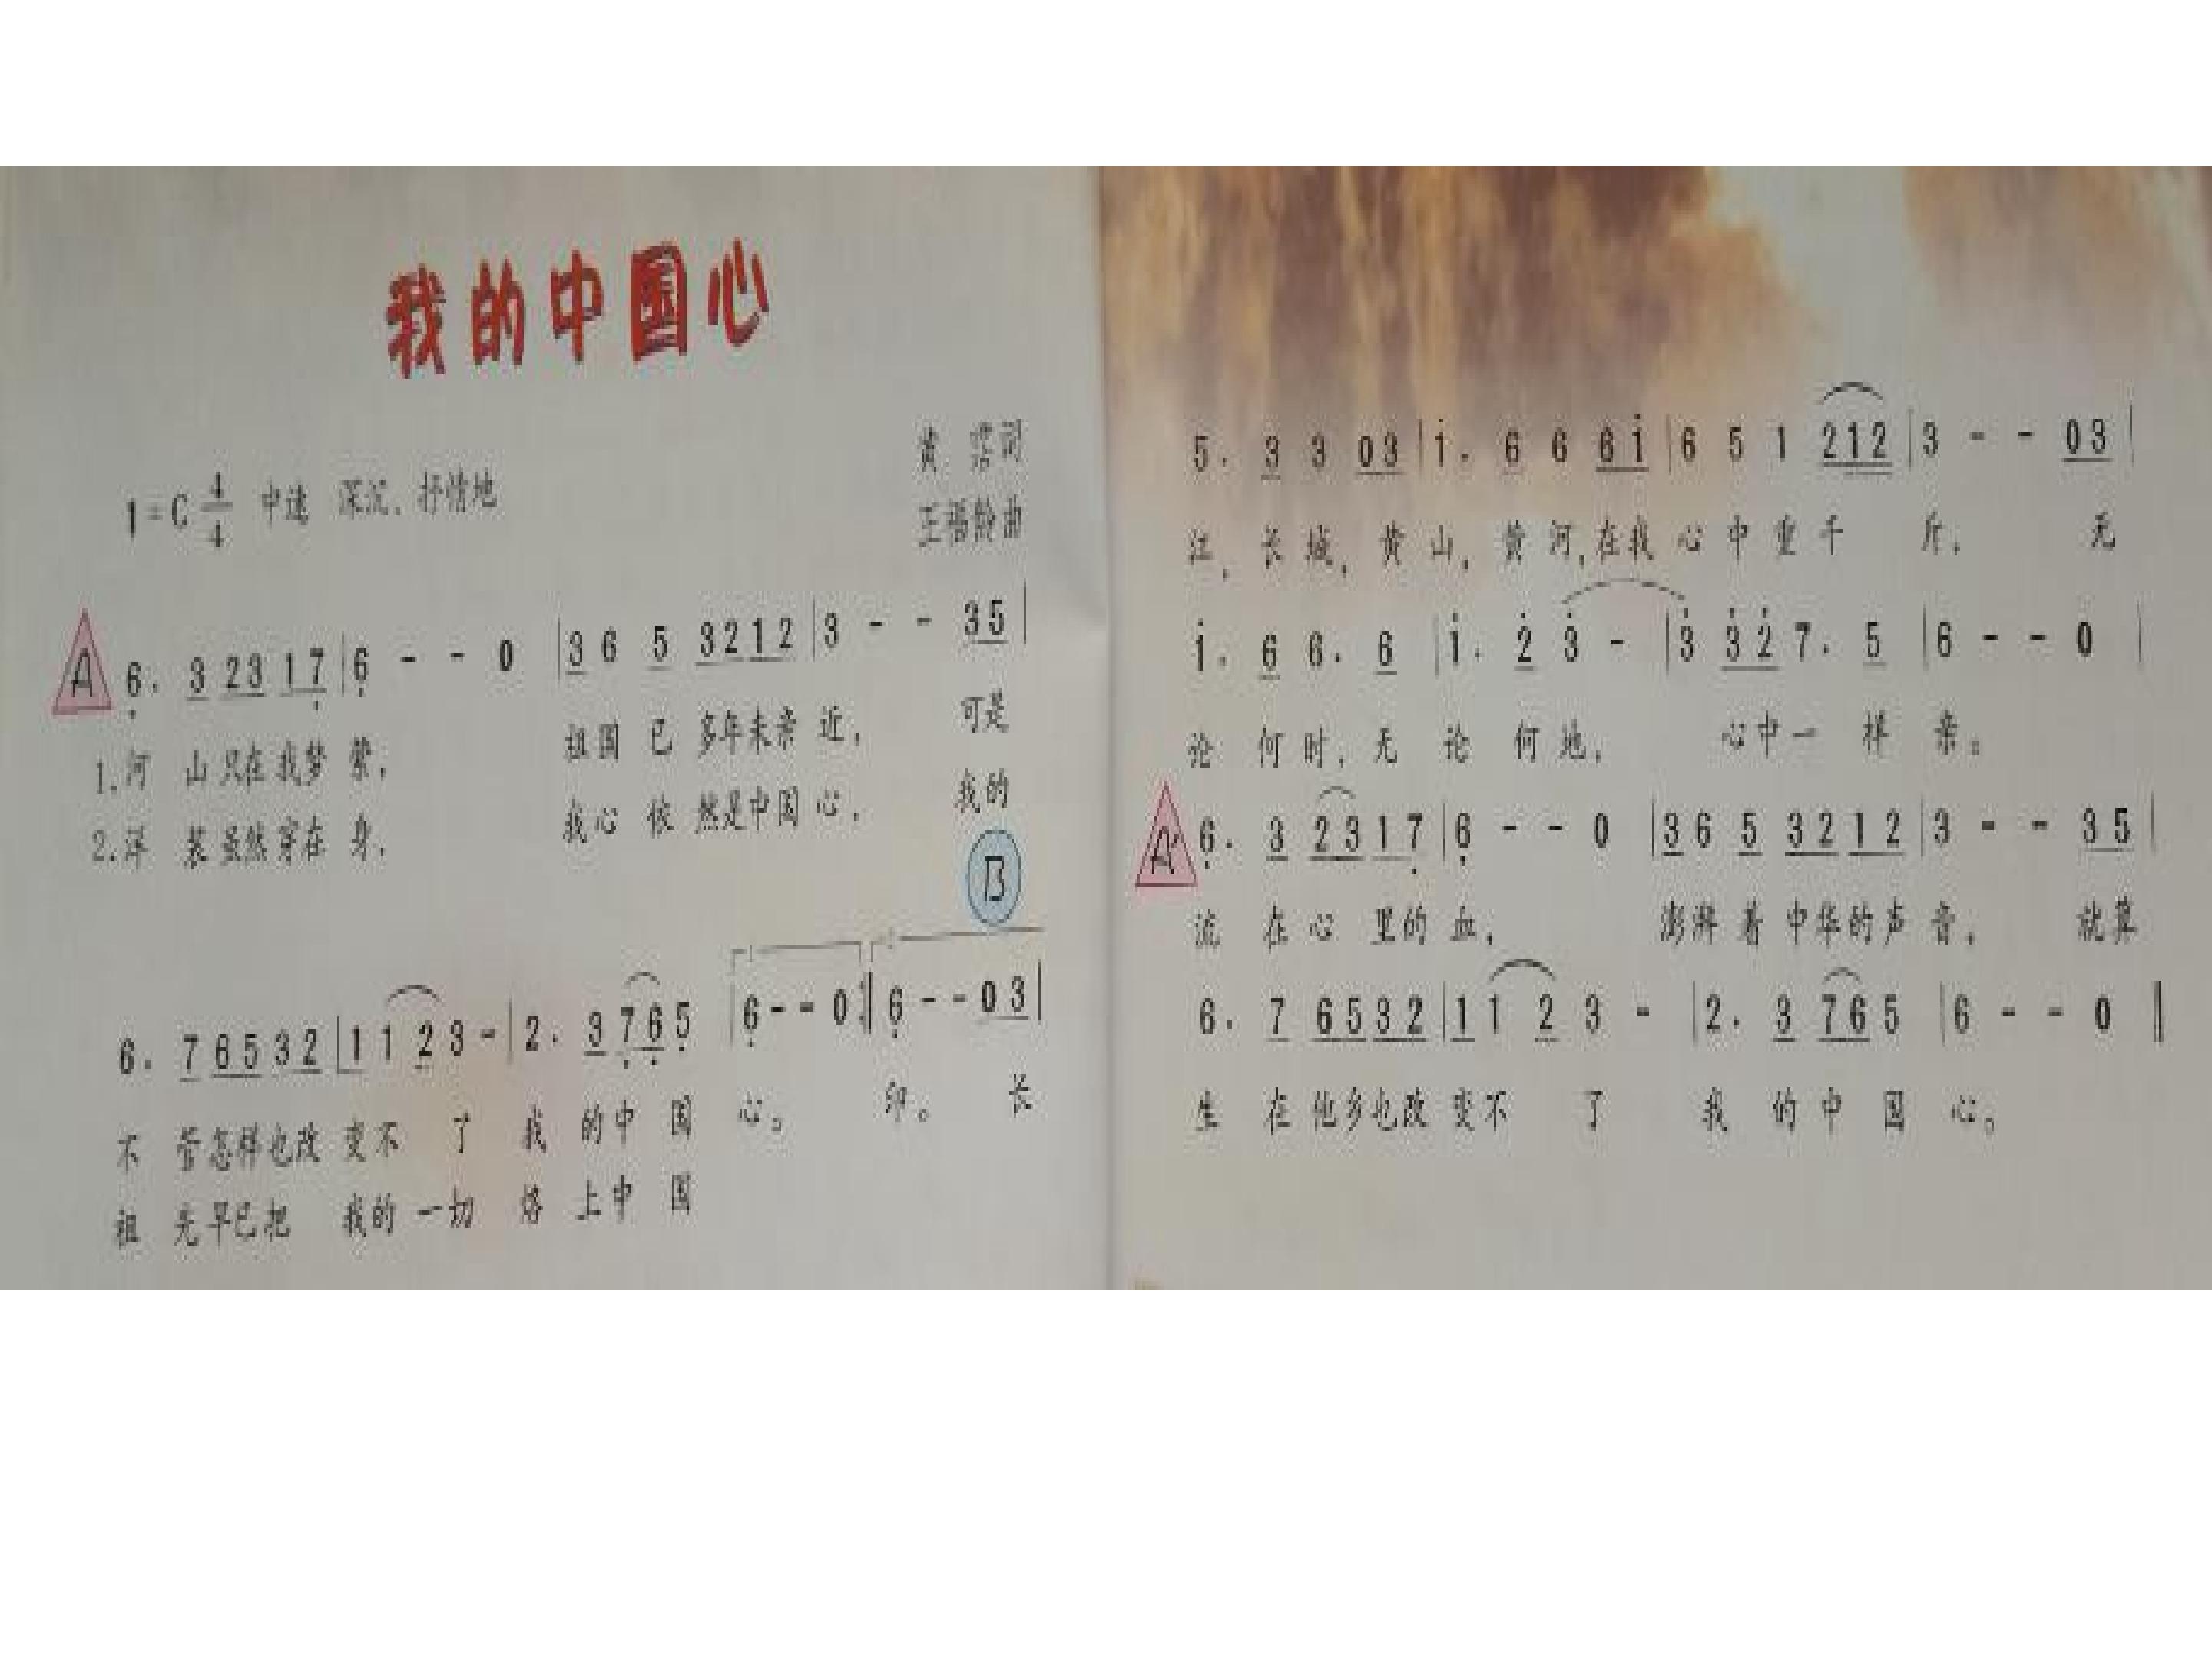 我的中国心
黄 霑词
1=C 4/4 中速 深沉、抒情地
王福龄曲
A
6. 3 23 17 | 6 - - 0 | 3 6 5 3212 | 3 - - 35 |
1.河 山只在我梦 萦， 祖国 已 多年未亲 近， 可是
2.洋 装虽然穿在 身， 我心 依 然是中国 心， 我的
B
6. 7 6532 | 1 1 2 3 - | 2. 3 7 6 5 | 6 - - 0 :‖ 6 - - 0 3 |
不 管怎样也改 变不 了 我 的中 国 心。 印。 长
祖 先早已把 我的 一切 烙 上中 国
5. 3 3 03 | i. 6 6 6i | 6 5 1 212 | 3 - - 03 |
江，长 城，黄 山，黄 河，在我 心 中 重 千 斤， 无
i. 6 6. 6 | i. 2 3 - | 3 32 7. 5 | 6 - - 0 |
论 何 时，无 论 何 地， 心中一 样 亲。
A'
6. 3 23 17 | 6 - - 0 | 3 6 5 32 12 | 3 - - 35 |
流 在 心 里的 血， 澎湃 着 中华的声 音， 就算
6. 7 6532 | 1 1 2 3 - | 2. 3 76 5 | 6 - - 0 ‖
生 在 他乡也改 变不 了 我 的 中 国 心。